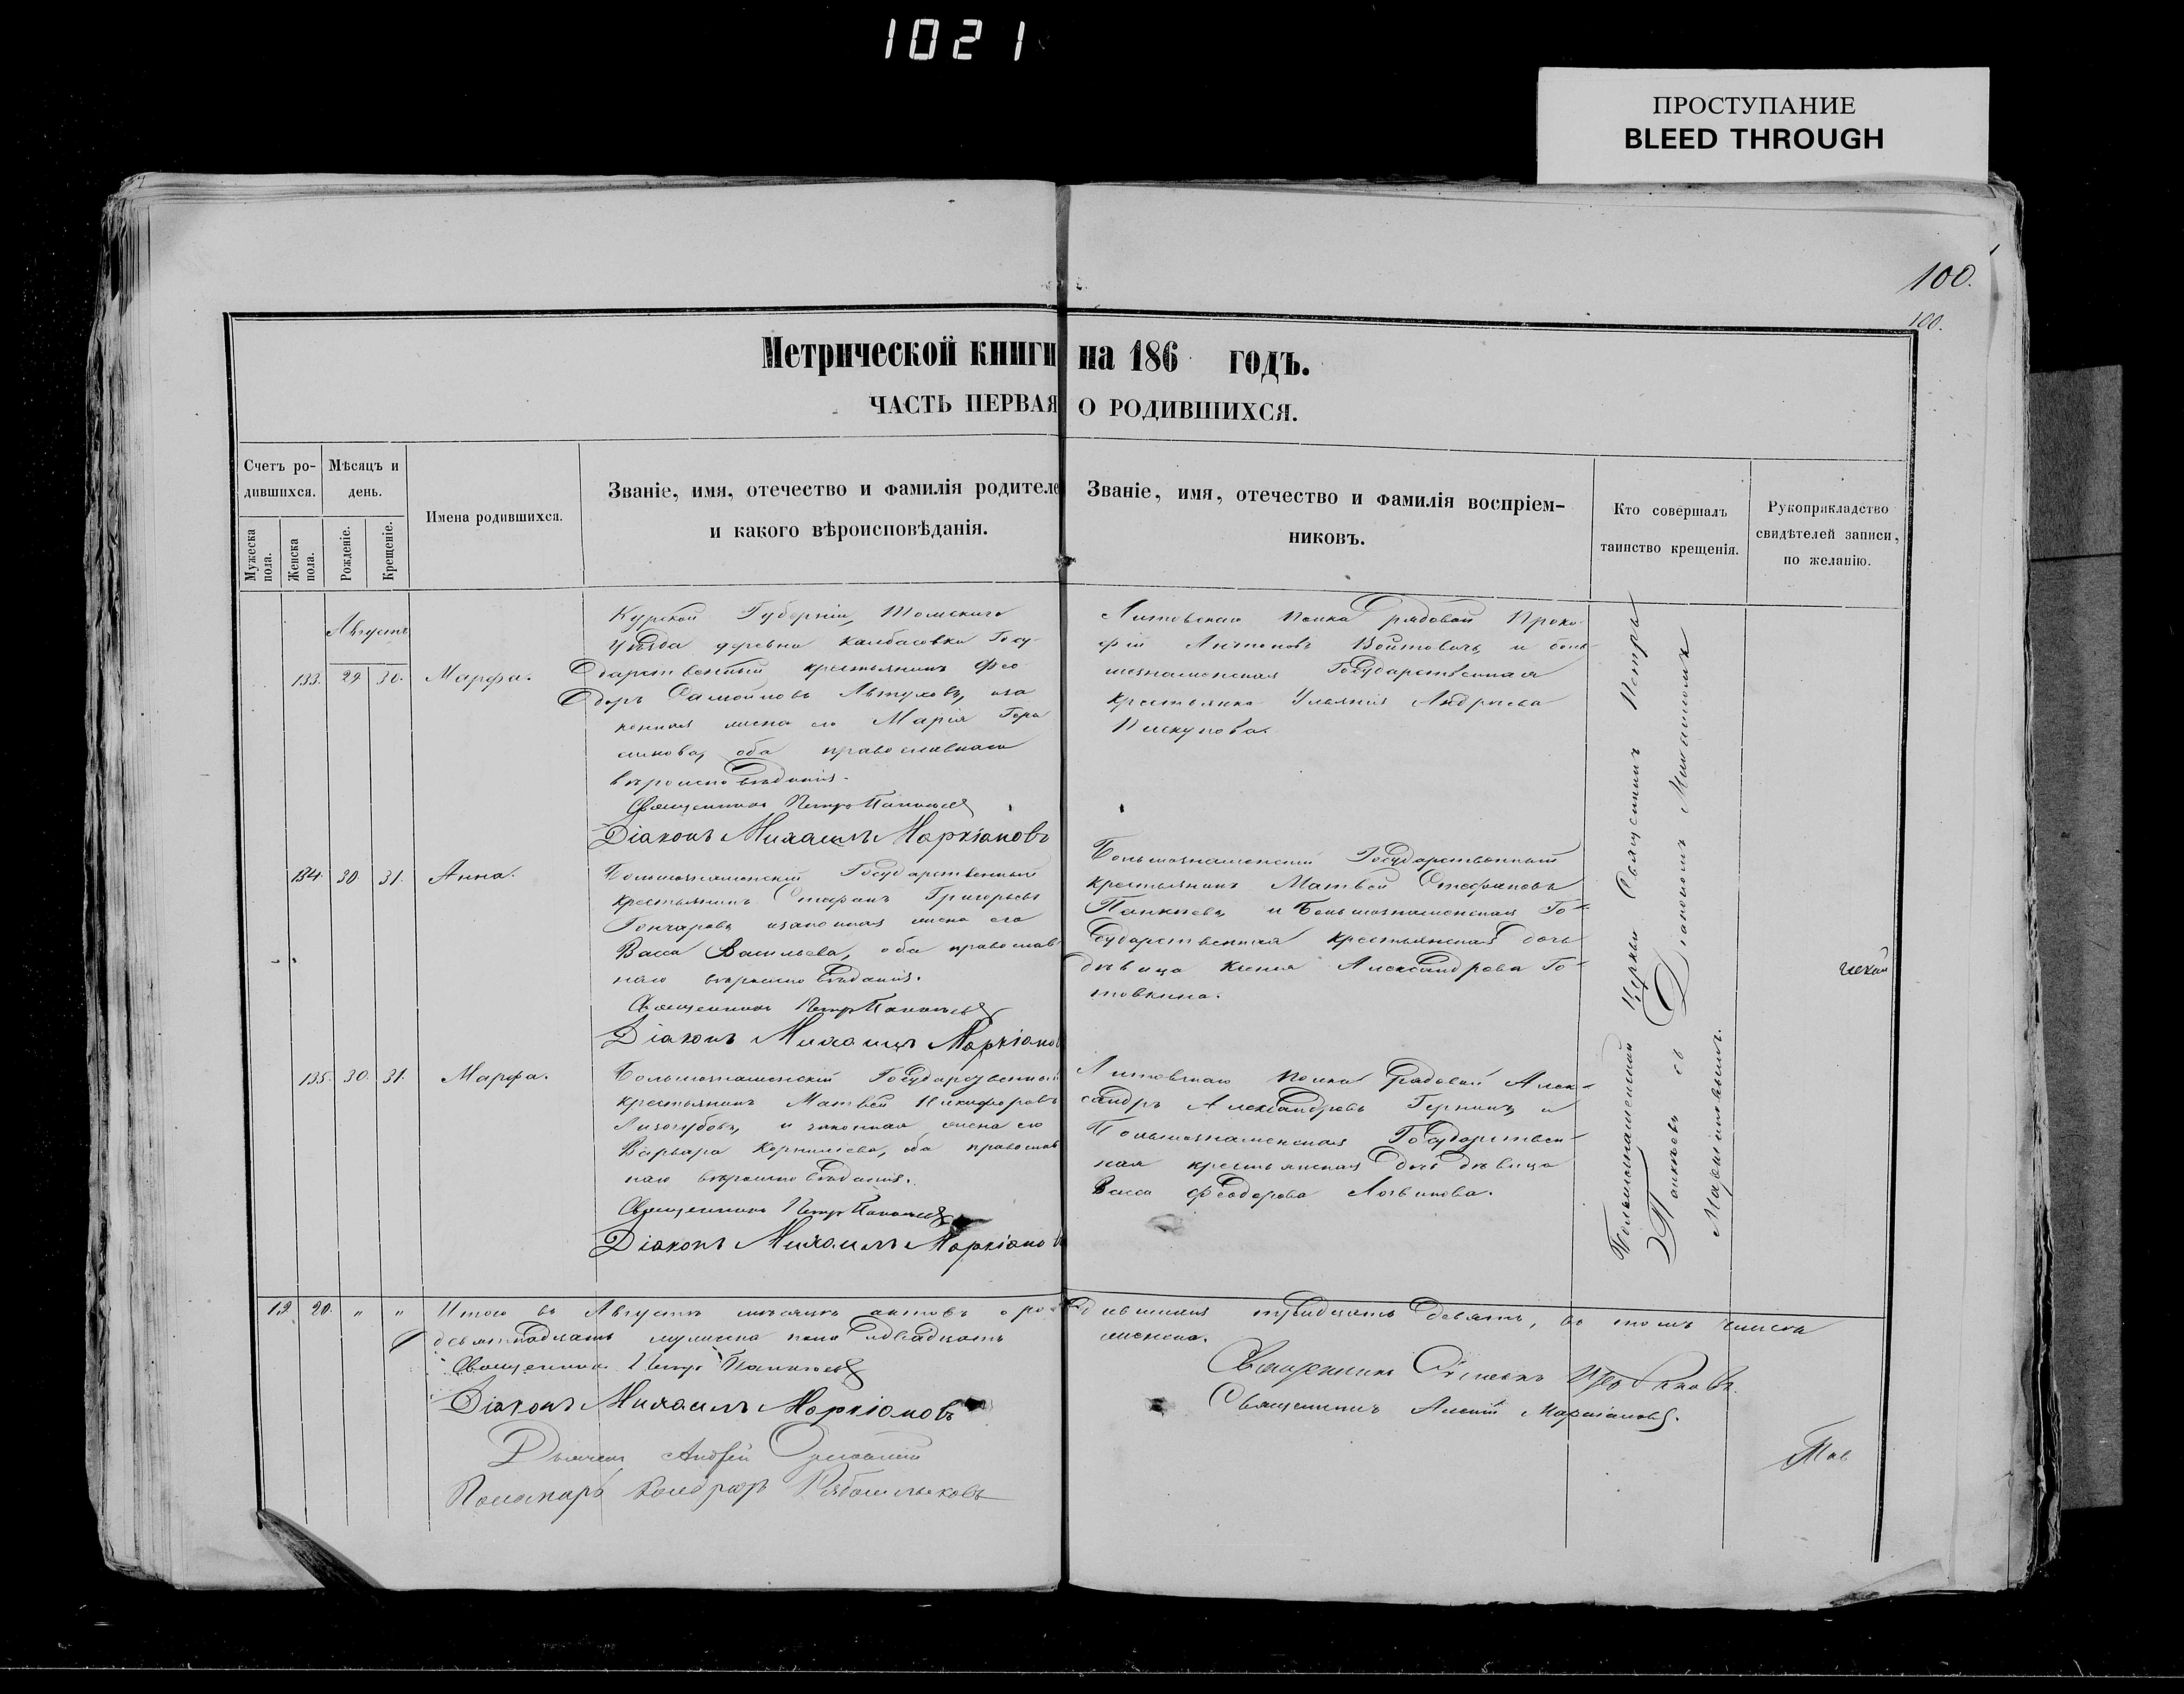 1021
ПРОСТУПАНИЕ
BLEED THROUGH
100.
100.
Метрической книги на 186 годъ.
ЧАСТЬ ПЕРВАЯ О РОДИВШИХСЯ.
Счетъ ро-
дившихся.
Мужеска
пола.
Женска
пола.
Мѣсяцъ и
день.
Рожденіе.
Крещеніе.
Имена родившихся.
Званіе, имя, отечество и фамилія родителе
и какого вѣроисповѣданія.
Званіе, имя, отечество и фамилія воспріем-
никовъ.
Кто совершалъ
таинство крещенія.
Рукоприкладство
свидѣтелей записи,
по желанію.
Августъ
133. 29 30. Марфа.
Курской Губерніи,
уѣзда деревни Калбасовки Госу-
дарственный крестьянинъ Фео
доръ Самойловъ иза
конная жена его Марія Гера
симова, оба православнаго
вѣроисповѣданія.
Священникъ Петръ
Діаконъ Михаилъ Маркіановъ
Литовскаго полка рядовой Проко-
фій Антоновъ Войтовичъ, и боль-
шезнаменская Государственная
крестьянка Ульянія Андреева
Пискунова.
134. 30. 31. Анна.
Большезнаменскій Государственный
крестьянинъ Стефанъ Григорьевъ
Гончаровъ изаконная жена его
Васса Васильева, оба православ
наго вѣроисповѣданія.
Священникъ Петръ
Діаконъ Михаилъ Маркіанов
Большезнаменскій Государственный
крестьянинъ Матвей Стефановъ
и Большезнаменская Го-
сударственная крестьянская дочь
дѣвица Ксенія Александрова Го-
товкина.
135. 30. 31. Марфа.
Большезнаменскій Государственный
крестьянинъ Матвей Никифоровъ
Лизогубовъ, и законная жена его
Варвара Корнилиева, оба православ
наго вѣроисповѣданія.
Священникъ Петръ
Діаконъ Михаилъ Маркіановъ
Литовскаго полка рядовой Алек-
сандръ Александровъ и
Большезнаменская Государствен-
ная крестьянская дочь дѣвица
Васса Феодорова Логвинова.
Большезнаменской Церкви Священникъ Петръ
съ Діакономъ Михаиломъ
Маркіановымъ.
19. 20. " " Итого въ Августѣ мѣсяцѣ актовъ о родившихся тридцать девять, въ томъ числѣ
девятнадцать мужеска пола идвадцать женска.
Священникъ Петръ
Діаконъ Михаилъ Маркіановъ
Дьячекъ Андрей
Пономарь
Священникъ
Священникъ Алексій Маркіановъ.
Тав